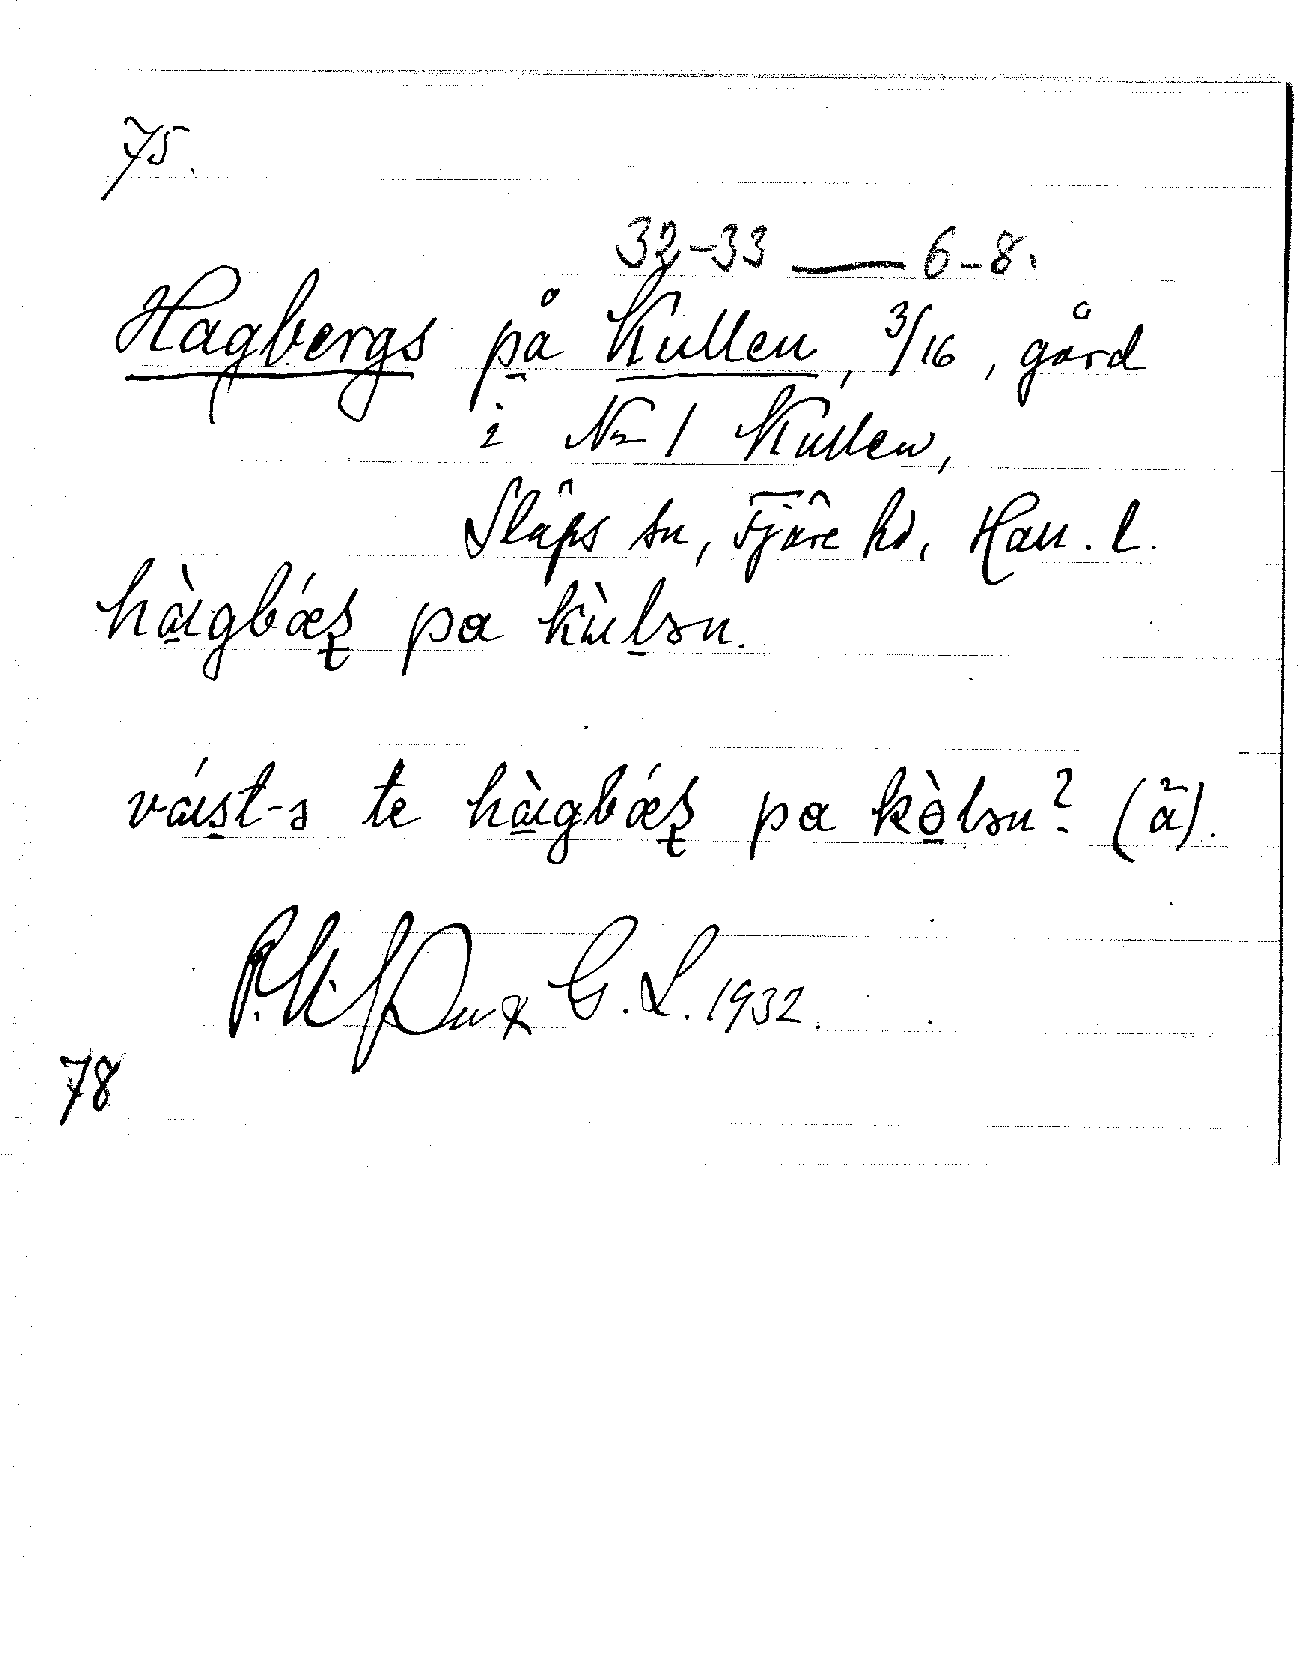 75.
32-33 — 6-8.
Hagbergs på Kullen, 3/16, gård
i No 1 Kullen,
Släps sn, Fjäre hd, Hall. l.
hàgbǽʂ pa kùlən.
vást-ə te hàgbǽʂ pa kòlən? (ä).
G. L. 1932.
78